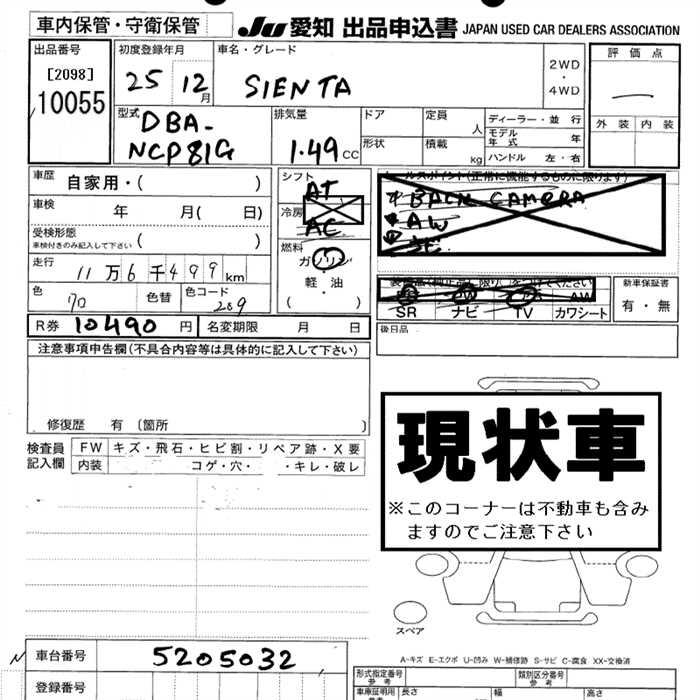 車内保管・守衛保管 JU 愛知 出品申込書 JAPAN USED CAR DEALERS ASSOCIATION
出品番号 [2098] 10055
初度登録年月 25 12月
車名・グレード SIENTA
2WD・4WD
評価点 —
外装 内装
型式 DBA-NCP81G
排気量 1.49cc
ドア 定員 人
形状 積載 kg
ディーラー・並行
モデル年式 年
ハンドル 左・右
車歴 自家用・( )
車検 年 月( 日)
受検形態 車検付きのみ記入して下さい ( )
走行 11万6千499km
色 色替 色コード 209
シフト AT
冷房 AC
燃料 ガソリン・軽油 ( )
セールスポイント(正常に機能するものに限ります)
BACK CAMERA
AW
SR ナビ TV カワシート
AW
新車保証書 有・無
後日品
R券 10490円 名変期限 月 日
注意事項申告欄(不具合内容等は具体的に記入して下さい)
修復歴 有〔箇所 〕
検査員記入欄 FW キズ・飛石・ヒビ割・リペア跡・X要
内装 コゲ・穴・ ・キレ・破レ
現状車
※このコーナーは不動車も含みますのでご注意下さい
スペア
A-キズ E-エクボ U-凹み W-補修跡 S-サビ C-腐食 XX-交換済
N 車台番号 5205032
登録番号
形式指定番号 参考 類別区分番号 参考
車庫証明用 長さ 幅 高さ